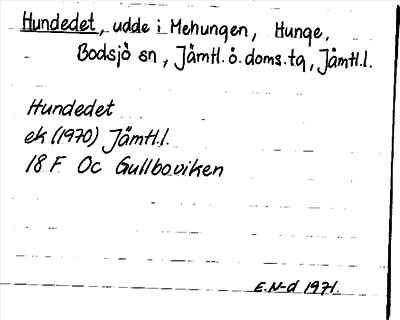 Hundedet, udde i Mehungen, Hunge,
Bodsjö sn, Jämtl.ö.doms.tg, Jämtl.l.
Hundedet
ek (1970) Jämtl.l.
18 F Oc Gullboviken
E.N-d 1971.